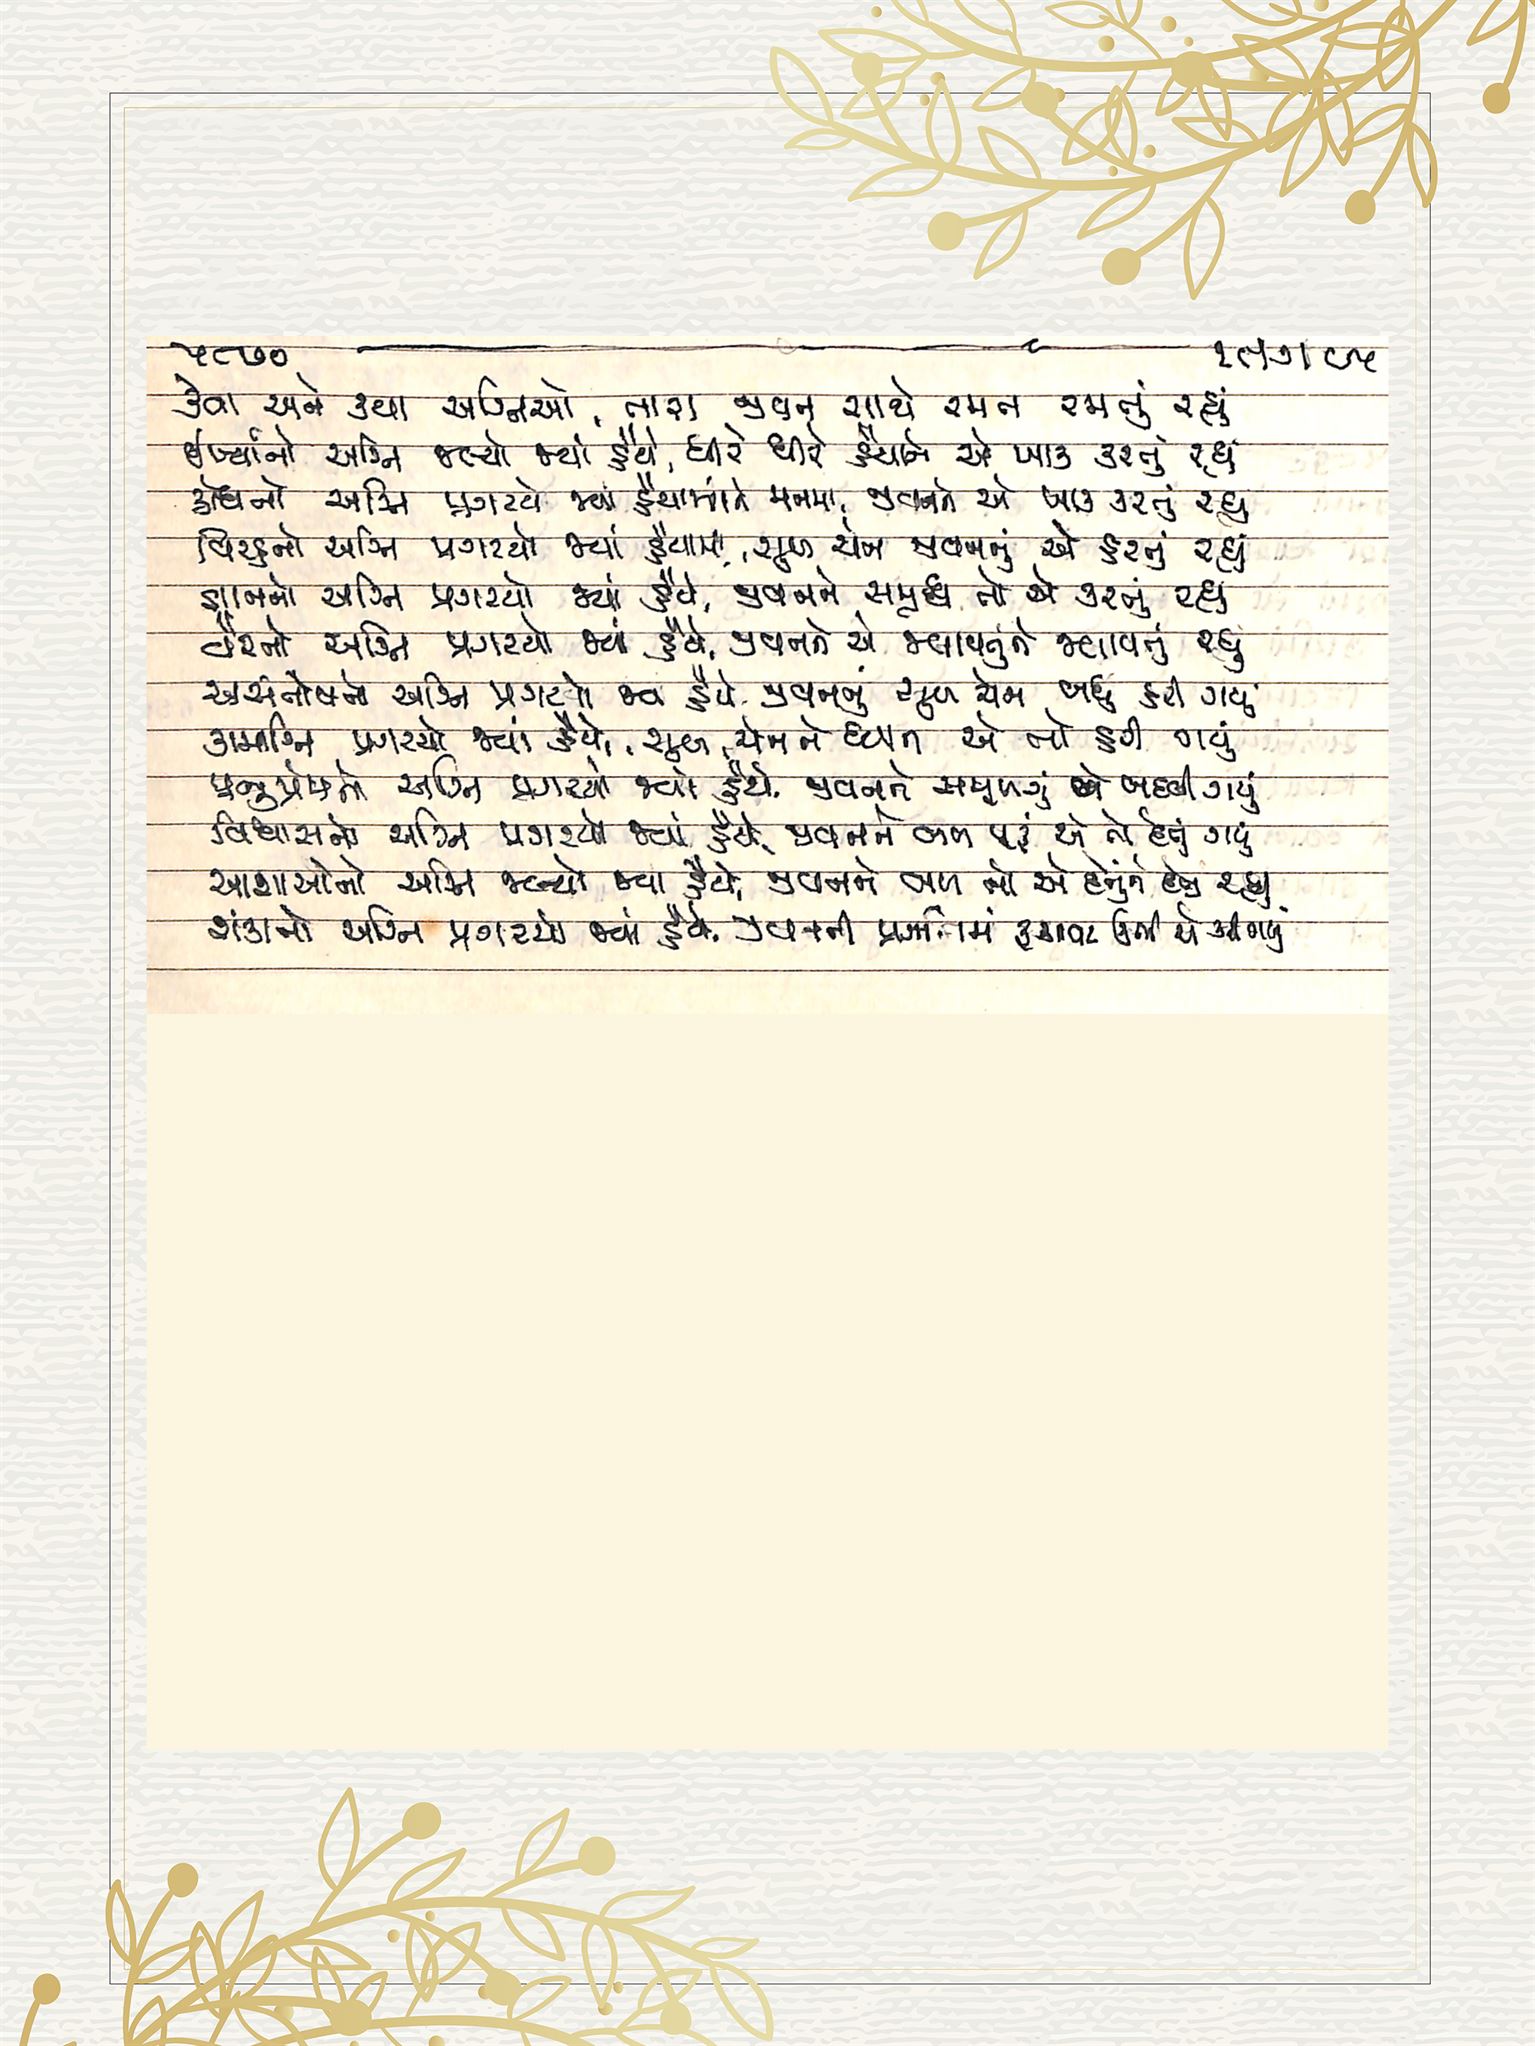 ૫૮૭૦
કેવા અને કયા અગ્નિઓ, તારા જીવન સાથે રમત રમતું રહ્યું
ઈર્ષ્યાનો અગ્નિ જલ્યો જ્યાં હૈયે, ધીરે ધીરે હૈયાને એ ખાક કરતું રહ્યું
ક્રોધનો અગ્નિ પ્રગટયો જ્યાં હૈયામાંને મનમાં, જીવનને એ ખાક કરતું રહ્યું
વિરહનો અગ્નિ પ્રગટયો જ્યાં હૈયામાં, સુખ ચેન જીવનનું એ હરતું રહ્યું
જ્ઞાનનો અગ્નિ પ્રગટયો જ્યાં હૈયે, જીવનને સમૃદ્ધ તો એ કરતું રહ્યું
વૈરનો અગ્નિ પ્રગટયો જ્યાં હૈયે, જીવનને એ જલાવતુંને જલાવતું રહ્યું
અસંતોષનો અગ્નિ પ્રગટયો જ્યાં હૈયે, જીવનનું સુખ ચેન બધું હરી ગયું
કામાગ્નિ પ્રગટયો જ્યાં હૈયે, સુખ, ચેનને ધ્યાન એ તો હરી ગયું
પ્રભુપ્રેમનો અગ્નિ પ્રગટયો જ્યાં હૈયે, જીવનને સઘળું એ બદલી ગયું
વિશ્વાસનો અગ્નિ પ્રગટયો જ્યાં હૈયે, જીવનને બળ પૂરું એ તો દેતું ગયું
આશાઓનો અગ્નિ જલ્યો જ્યાં હૈયે, જીવનને બળ તો એ દેતુંને દેતું રહ્યું
શંકાનો અગ્નિ પ્રગટયો જ્યાં હૈયે, જીવનની પ્રગતિમાં રૂકાવટ ઊભી એ કરી ગયું